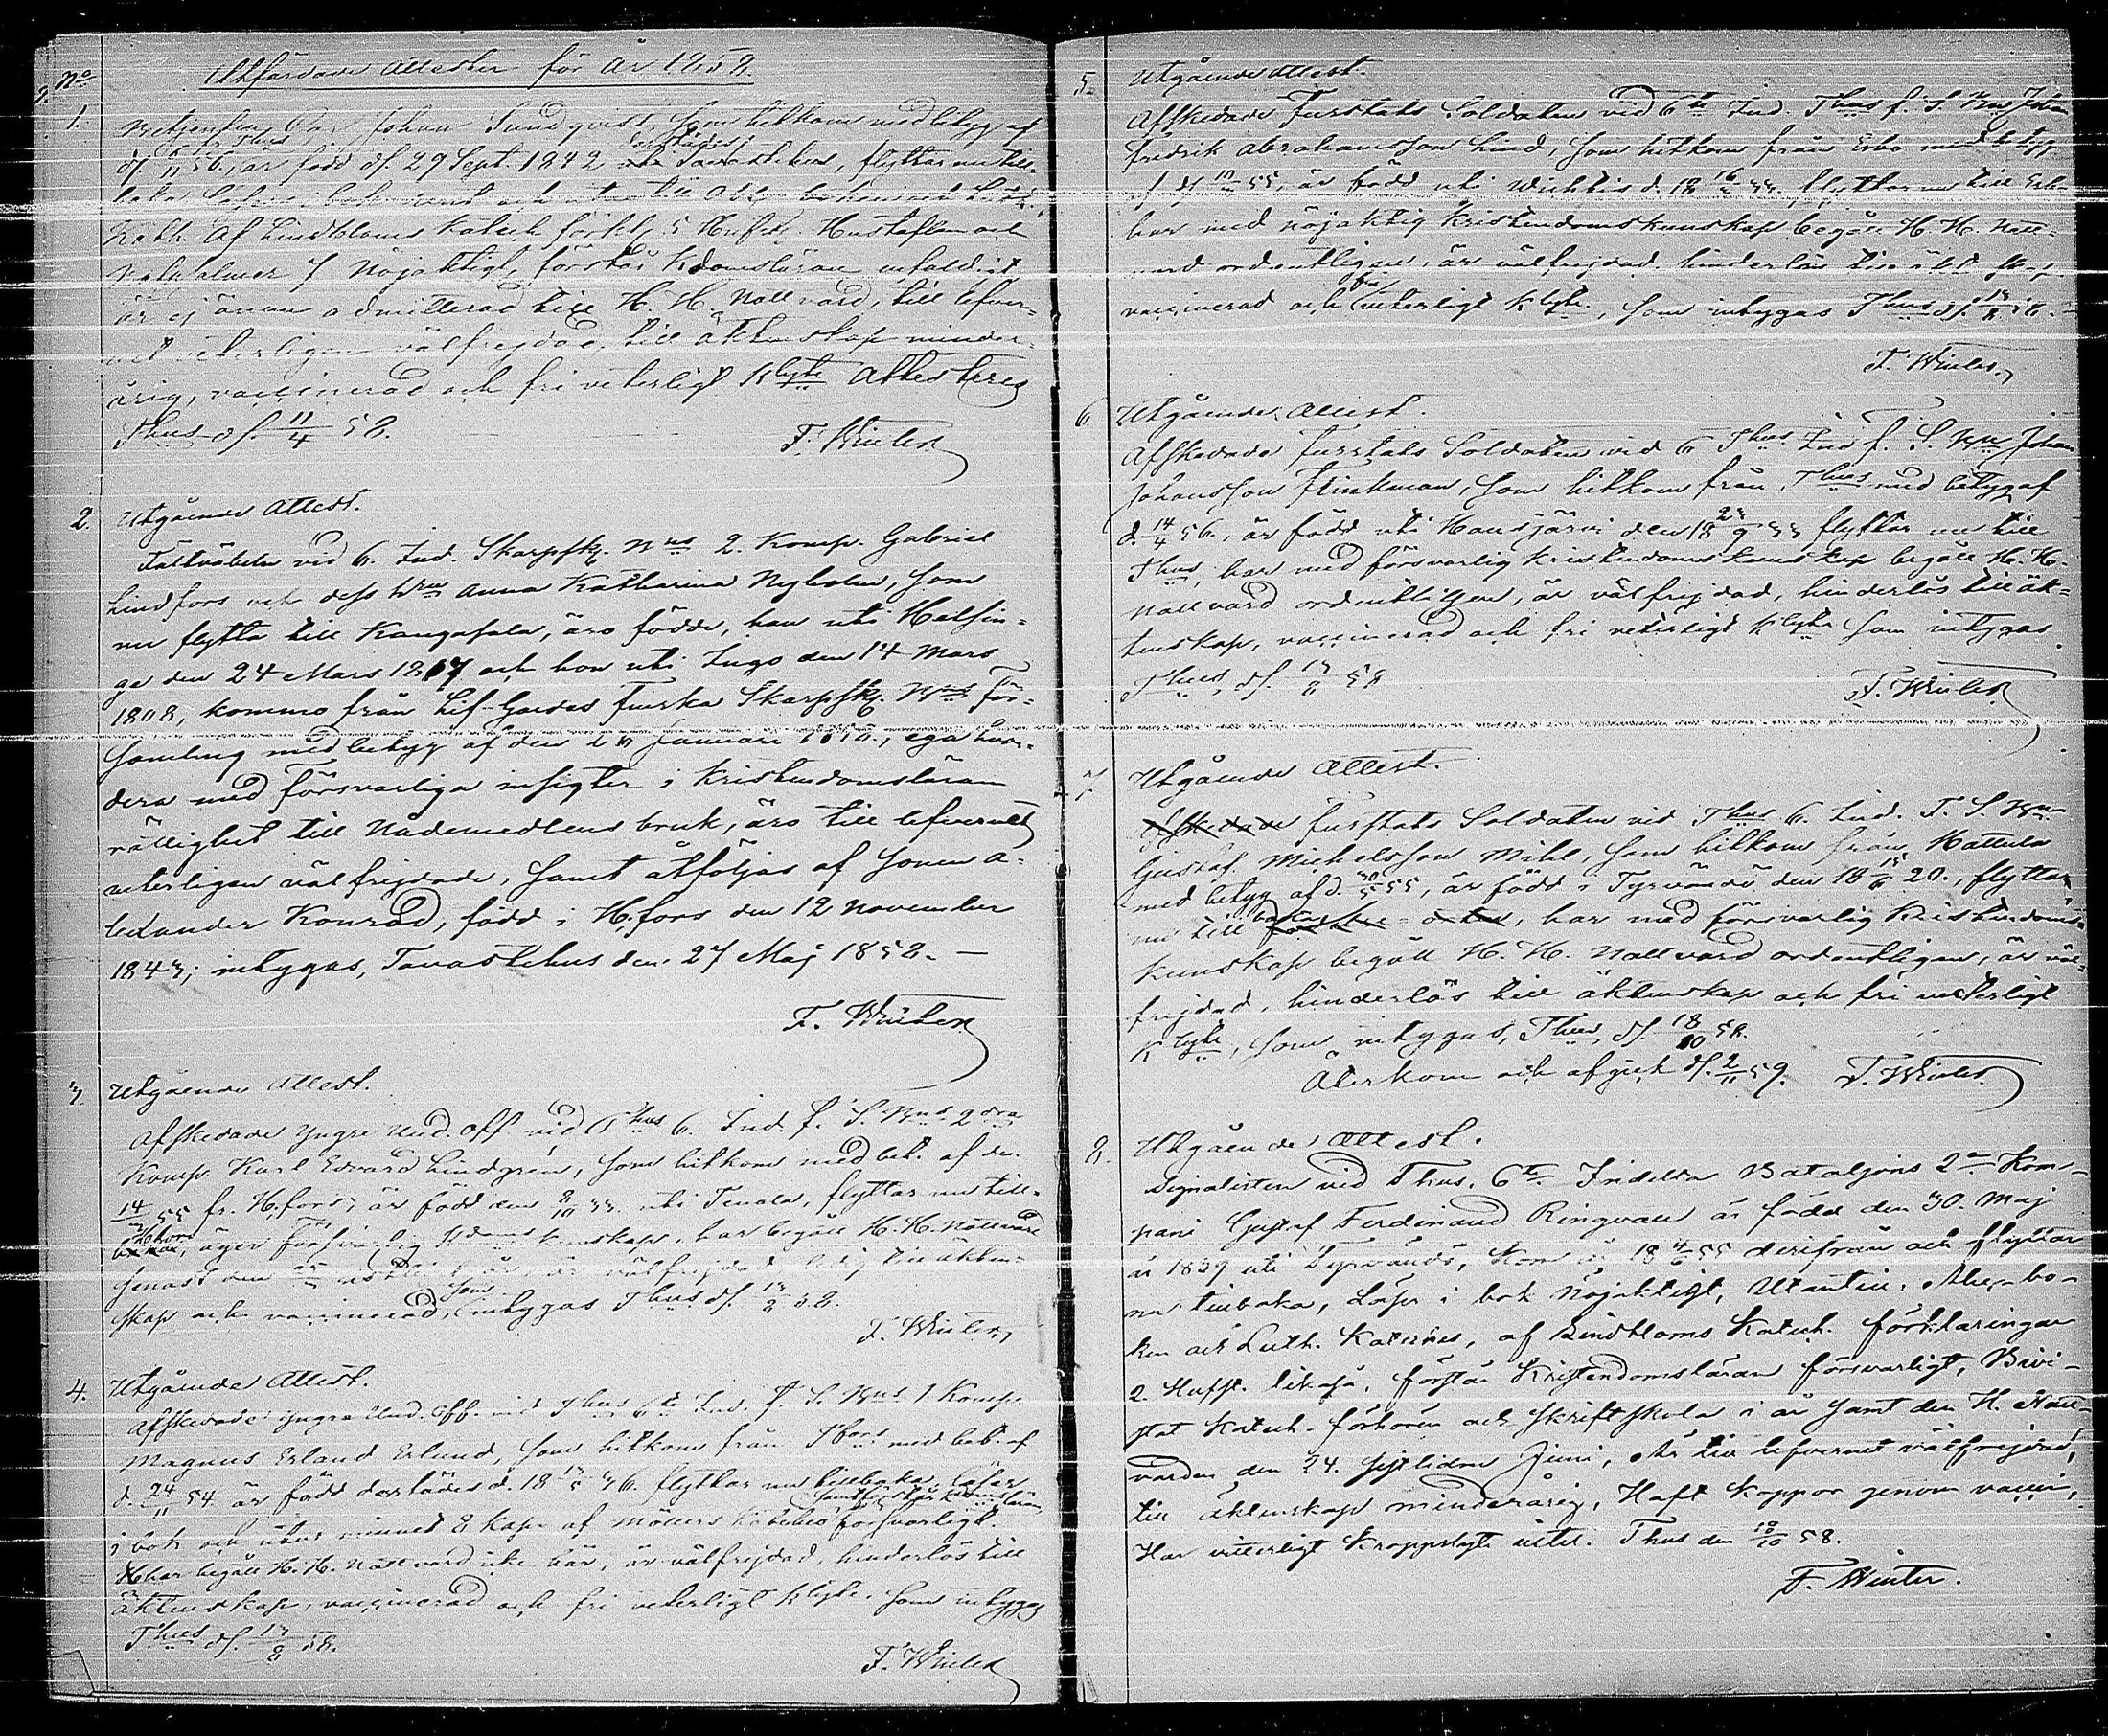 No
Utfärdade Attester för År 1858.
1.
Johan Sundqvist, som hitkom med betyg af
df. 56., är född df. 29 Sept. 1842 flyttar nu till-
baka
Kath. af Lindbloms Katech. förkl. 5 Hufst. Hustaflan och
7 nöjaktigt, förstår Kdomsläran enfaldigt
är ej ännu admitterad till H. H. Nattvard, till lefver-
net veterligen välfrejdad, till äktenskap minder-
årig, vaccinerad och fri veterligt Klyte Attesteras
Thus df. 11/4 58.
F. Winter
2. Utgående Attest.
Fältväbeln vid 6. Ind. Skarpsk. Bns 2. Komp. Gabriel
Lindfors och dess Hru Anna Katharina Nyholm, som
nu flytta till Kangasala, äro födde, han uti Helsin-
ge den 24 Mars 1817 och hon uti Ingo den 14 Mars
1808, kommo från Lif-Gardes Finska Skarpsk. Bns För-
samling med betyg af den Januari ega hvar-
dera med försvarliga insigter i Kristendomsläran
rättighet till Nådemedlens bruk, äro till lefvernet
veterligen välfrejdade, samt åtföljas af sonen A-
lexander Konrad, född i H.fors den 12 November
1843; intygas, Tavastehus den 27 Maj 1858. –
F. Winter
3. Utgående Attest.
Afskedade yngre Und. Off. vid Thus 6. Ind. f. S. Bns 2dra
Komp. Karl Edvard Lindgren, som hitkom med bet. af den
14/3 55 fr. H.fors, är född den 8/10 33 uti Tenala, flyttar nu till
äger försvarlig Kdoms kunskap, har begått H. H. Nattvard
senast den är välfrejdad ledig till äkten-
skap och vaccinerad, som intygas Thus df. 13/8 58.
F. Winter
4. Utgående Attest.
Afskedade yngre Und. Off. vid Thus 6te Ind. f. S. Bns 1 Komp.
Magnus Erland Erlund, som hitkom från med bet. af
d. 24/11 54 är född derstädes d. 18 36. flyttar nu tillbaka, läser
i bok och utur minnet 8 kap. af Möllers Kateches försvarligt.
har begått H. H. Nattvard är välfrejdad, hinderlös till
äktenskap, vaccinerad och fri veterligt Klyte. som intygas
Thus df. 13/8 58.
F. Winter
5. Utgående Attest.
Afskedade Furstats Soldaten vid 6te Ind. Thus f. S. Bns Johan
Fredrik Abrahamsson Lind, som hitkom från Esbo med betyg
af df. 10 55, är född uti Wichtis d. 18 16 33. flyttar nu till Esbo
har med nöjaktig Kristendomskunskap begått H. H. Natt-
vard ordentligen, är välfrejdad, hinderlös till äktenskap
vaccinerad och fri veterligt Klyte., som intygas Thus df. 13/8 58. –
F. Winter
6. Utgående Attest.
Afskedade Furstats Soldaten vid 6 Thus Ind f. S. Bn Johan
Johansson Flinkman, som hitkom från Thus med betyg af
d. 14/4 56., är född uti Hausjärvi den 18 23/9 33 flyttar nu till
Thus, har med försvarlig Kristendomskunskap begått H. H.
Nattvard ordentligen, är välfrejdad, hinderlös till äk-
tenskap, vaccinerad och fri veterligt Klyte som intygas
Thus, df. 13/8 58
F. Winter
7. Utgående Attest.
Afskedade Furstats Soldaten vid Thus 6. Ind. F. S. Bn
Gustaf Michelsson Mihl, som hitkom från Hattula
med betyg af d. 30/5 55, är född i Tyrvändö den 18 15/6 20., flyttar
nu till har med försvarlig Kristendoms-
kunskap begått H. H. Nattvard ordentligen, är väl-
frejdad, hinderlös till äktenskap och fri veterligt
Klyte, som intygas, Thus, df. 18/10 58.
Återkom och afgick df. 2/11 59. F. Winter
8. Utgående Attest.
Signalisten vid Thus. 6te Indelta Bataljons 2a Kom-
pani Gustaf Ferdinand Ringvall är född den 30. Maj
år 1839 uti Tyrvändö, Kom 18 4/6 55 derifrån och flyttar
nu tillbaka, Läser i bok nöjaktigt, Utantill, Abc-bo-
ken och Luth. Kateches, af Lindbloms Katech. förklaringar
2. Hufst. likaså, förstår Kristendomsläran försvarligt, Bivi-
stat Katech. förhören och skriftskola i år samt den H. Natt-
varden den 24. sistlidne Juni, Är till lefvernet välfrejdad,
till äktenskap minderårig, Haft koppor genom vaccin,
Har vitterligt kroppslyte intet. Thus den 18/10 58.
F. Winter.